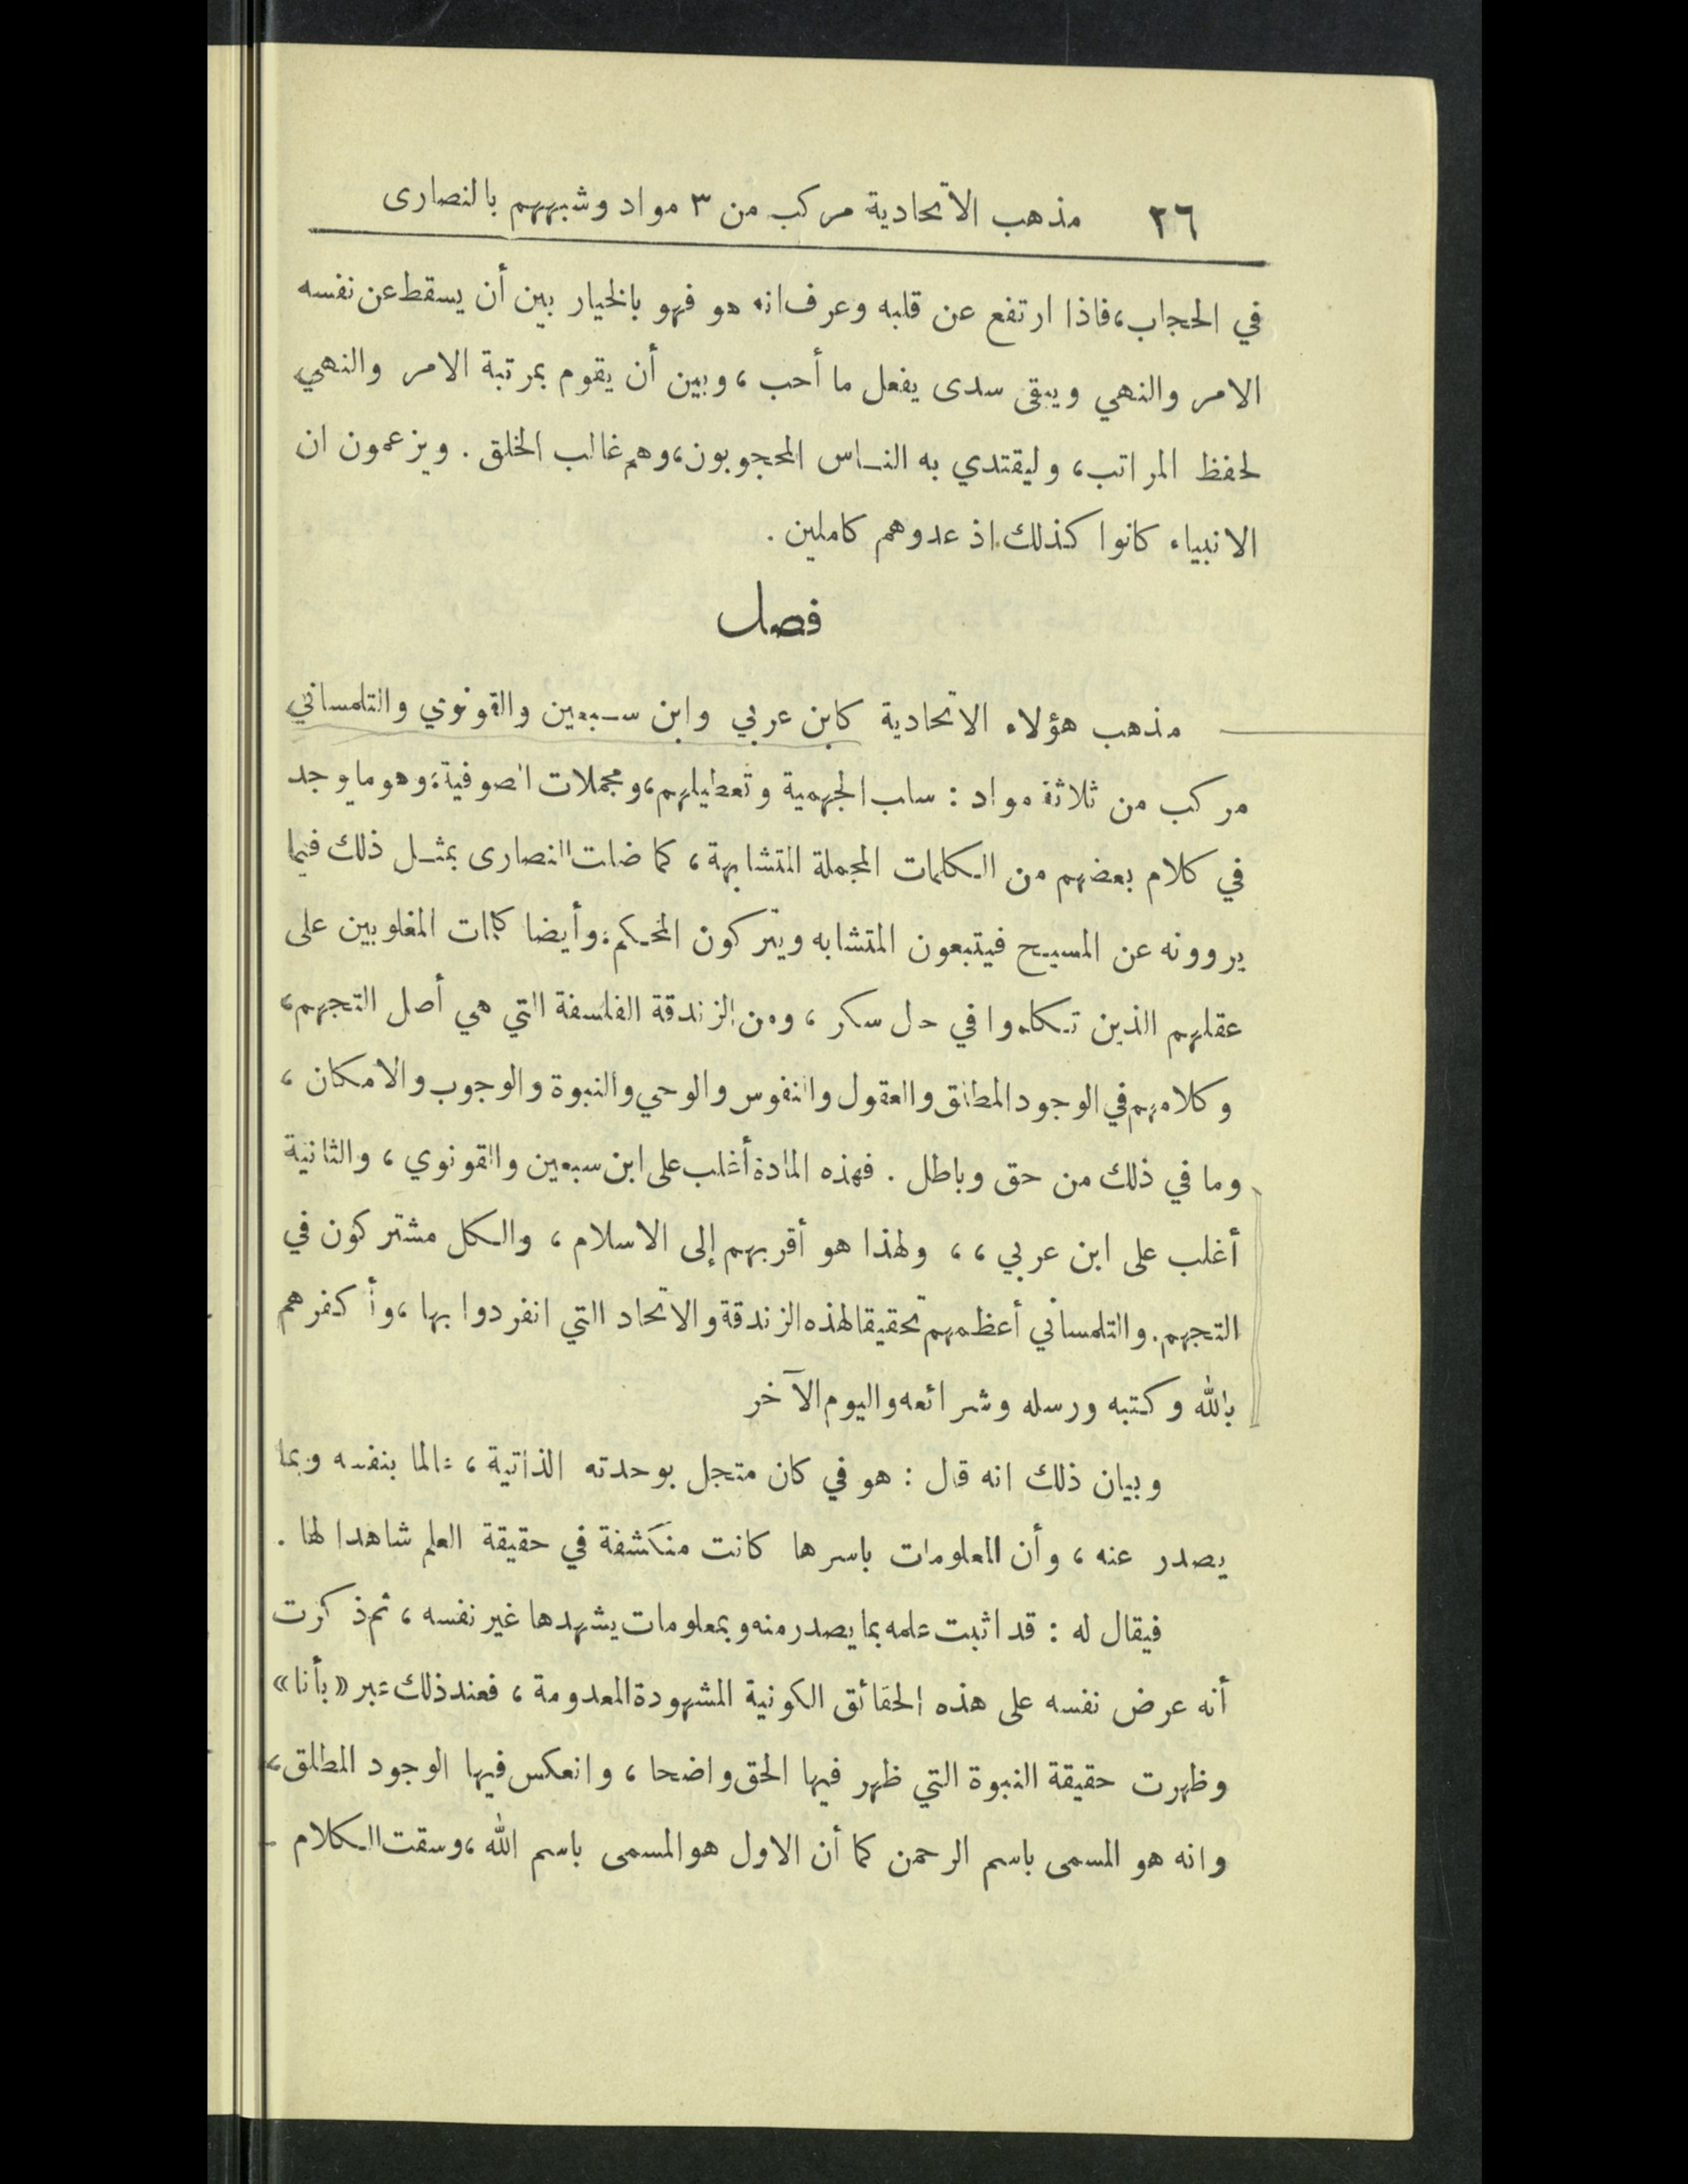 ٢٦ مذهب الاتحادية مركب من ٣ مواد وشبههم بالنصارى
في الحجاب، فاذا ارتفع عن قلبه وعرف انه هو فهو بالخيار بين أن يسقط عن نفسه
الامر والنهي ويبقى سدى يفعل ما أحب ، وبين أن يقوم بمرتبة الامر والنهي
لحفظ المراتب، وليقتدي به الناس المحجوبون، وهم غالب الخلق . ويزعمون ان
الانبياء كانوا كذلك اذ عدوهم كاملين .
فصل
مذهب هؤلاء الاتحادية كابن عربي وابن سبعين والقونوي والتلمساني
مركب من ثلاثة مواد : سلب الجهمية وتعطيلهم، ومجملات الصوفية: وهو ما يوجد
في كلام بعضهم من الكلمات المجملة المتشابهة ، كما ضلت النصارى بمثل ذلك فيما
يروونه عن المسيح فيتبعون المتشابه ويتركون المحكم: وأيضا كلمات المغلوبين على
عقلهم الذين تكلموا في حال سكر ، ومن الزندقة الفلسفة التي هي أصل التجهم،
وكلامهم في الوجود المطلق والعقول والنفوس والوحي والنبوة والوجوب والامكان ،
وما في ذلك من حق وباطل . فهذه المادة أغلب على ابن سبعين والقونوي ، والثانية
أغلب على ابن عربي ، ، ولهذا هو أقربهم إلى الاسلام ، والكل مشتركون في
التجهم. والتلمساني أعظمهم تحقيقا لهذه الزندقة والاتحاد التي انفردوا بها ، وأكفرهم
بالله وكتبه ورسله وشرائعه واليوم الآخر
وبيان ذلك انه قال : هو في كان متجل بوحدته الذاتية ، عالما بنفسه وبما
يصدر عنه ، وأن المعلومات باسرها كانت منكشفة في حقيقة العلم شاهدا لها .
فيقال له : قد اثبت علمه بما يصدر منه وبمعلومات يشهدها غير نفسه ، ثم ذكرت
أنه عرض نفسه على هذه الحقائق الكونية المشهودة المعدومة ، فعند ذلك عبر «بأنا»
وظهرت حقيقة النبوة التي ظهر فيها الحق واضحا ، وانعكس فيها الوجود المطلق،
وانه هو المسمى باسم الرحمن كما أن الاول هو المسمى باسم الله ، وسقت الكلام -